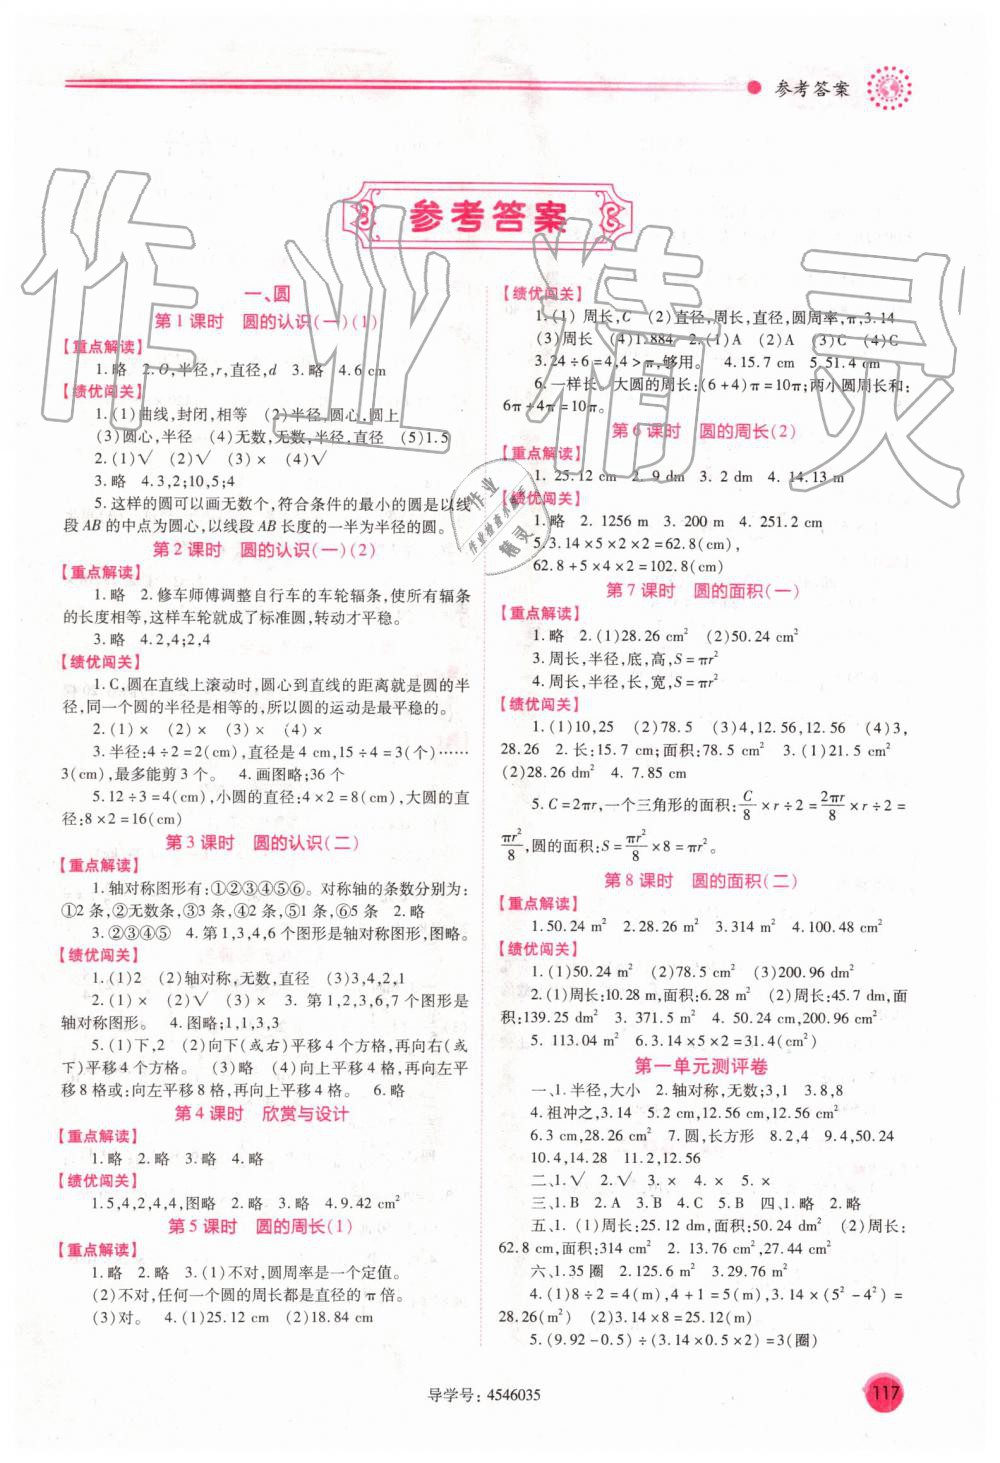 参考答案
参考答案
一、圆
第1课时 圆的认识(一)(1)
【重点解读】
1.略 2.O,半径,r,直径,d 3.略 4.6 cm
【绩优闯关】
1.(1)曲线,封闭,相等 (2)半径,圆心,圆上
(3)圆心,半径 (4)无数,无数,半径,直径 (5)1.5
2.(1)√ (2)√ (3)× (4)√
3.略 4.3,2;10,5;4
5.这样的圆可以画无数个,符合条件的最小的圆是以线
段AB的中点为圆心,以线段AB长度的一半为半径的圆。
第2课时 圆的认识(一)(2)
【重点解读】
1.略 2.修车师傅调整自行车的车轮辐条,使所有辐条
的长度相等,这样车轮就成了标准圆,转动才平稳。
3.略 4.2,4;2,2
【绩优闯关】
1.C,圆在直线上滚动时,圆心到直线的距离就是圆的半
径,同一个圆的半径是相等的,所以圆的运动是最平稳的。
2.(1)× (2)× (3)× (4)×
3.半径:4÷2=2(cm),直径是4 cm,15÷4=3(个)……
3(cm),最多能剪3个。 4.画图略;36个
5.12÷3=4(cm),小圆的直径:4×2=8(cm),大圆的直
径:8×2=16(cm)
第3课时 圆的认识(二)
【重点解读】
1.轴对称图形有:①②③④⑤⑥。对称轴的条数分别为:
①2条,②无数条,③3条,④2条,⑤1条,⑥5条 2.略
3.②③④⑤ 4.第1,3,4,6个图形是轴对称图形,图略。
【绩优闯关】
1.(1)2 (2)轴对称,无数,直径 (3)3,4,2,1
2.(1)× (2)√ (3)× 3.第1,2,3,6,7个图形是
轴对称图形。 4.图略;1,1,3,3
5.(1)下,2 (2)向下(或右)平移4个方格,再向右(或
下)平移4个方格。 (3)略 (4)向上平移4个方格,再向左平
移8个方格或:向左平移8格,再向上平移4格。 6.略
第4课时 欣赏与设计
【重点解读】
1.略 2.略 3.略 4.略
【绩优闯关】
1.5,4,2,4,4,图略 2.略 3.略 4.9.42 cm²
第5课时 圆的周长(1)
【重点解读】
1.略 2.略 3.(1)不对,圆周率是一个定值。
(2)不对,任何一个圆的周长都是直径的π倍。
(3)对。 4.(1)25.12 cm (2)18.84 cm
【绩优闯关】
1.(1)周长,C (2)直径,周长,直径,圆周率,π,3.14
(3)周长 (4)1.884 2.(1)A (2)A (3)C (4)C
3.24÷6=4,4>π,够用。 4.15.7 cm 5.51.4 cm
6.一样长。大圆的周长:(6+4)π=10π;两小圆周长和:
6π+4π=10π。
第6课时 圆的周长(2)
【重点解读】
1. 25.12 cm 2. 9 dm 3. 2 dm 4. 14.13 m
【绩优闯关】
1.略 2. 1256 m 3. 200 m 4. 251.2 cm
5.3.14×5×2×2=62.8(cm),
62.8+5×4×2=102.8(cm)
第7课时 圆的面积(一)
【重点解读】
1.略 2.(1)28.26 cm² (2)50.24 cm²
3.周长,半径,底,高,S=πr²
4.周长,半径,长,宽,S=πr²
【绩优闯关】
1.(1)10,25 (2)78.5 (3)4,12.56,12.56 (4)3,
28.26 2.长:15.7 cm;面积:78.5 cm² 3.(1)21.5 cm²
(2)28.26 dm² 4. 7.85 cm
5.C=2πr,一个三角形的面积:C/8×r÷2=2πr/8×r÷2=
πr²/8,圆的面积:S=πr²/8×8=πr²。
第8课时 圆的面积(二)
【重点解读】
1.50.24 cm² 2.28.26 m² 3.314 m² 4.100.48 cm²
【绩优闯关】
1.(1)50.24 m² (2)78.5 cm² (3)200.96 dm²
2.(1)周长:10.28 m,面积:6.28 m² (2)周长:45.7 dm,面
积:139.25 dm² 3. 371.5 m² 4. 50.24 cm,200.96 cm²
5. 113.04 m² 6.3.14×5×2=31.4(cm²)
第一单元测评卷
一、1.半径,大小 2.轴对称,无数;3,1 3.8,8
4.祖冲之,3.14 5.2 cm,12.56 cm,12.56 cm²
6.3 cm,28.26 cm² 7.圆,长方形 8.2,4 9.4,50.24
10.4,14.28 11.2,12.56
二、1.√ 2.√ 3.× 4.× 5.×
三、1.B 2.A 3.B 4.C 5.B 四、1.略 2.略
五、1.(1)周长:25.12 dm,面积:50.24 dm² (2)周长:
62.8 cm,面积:314 cm² 2. 13.76 cm²,27.44 cm²
六、1.35圈 2.125.6 m² 3.29.76 m²
4.(1)8÷2=4(m),4+1=5(m),3.14×(5²-4²)=
28.26(m²) (2)3.14×8=25.12(m)
5.(9.92-0.5)÷(3.14×0.5×2)=3(圈)
导学号:4546035
117
作业精灵
作业
作业检查小助手
精灵